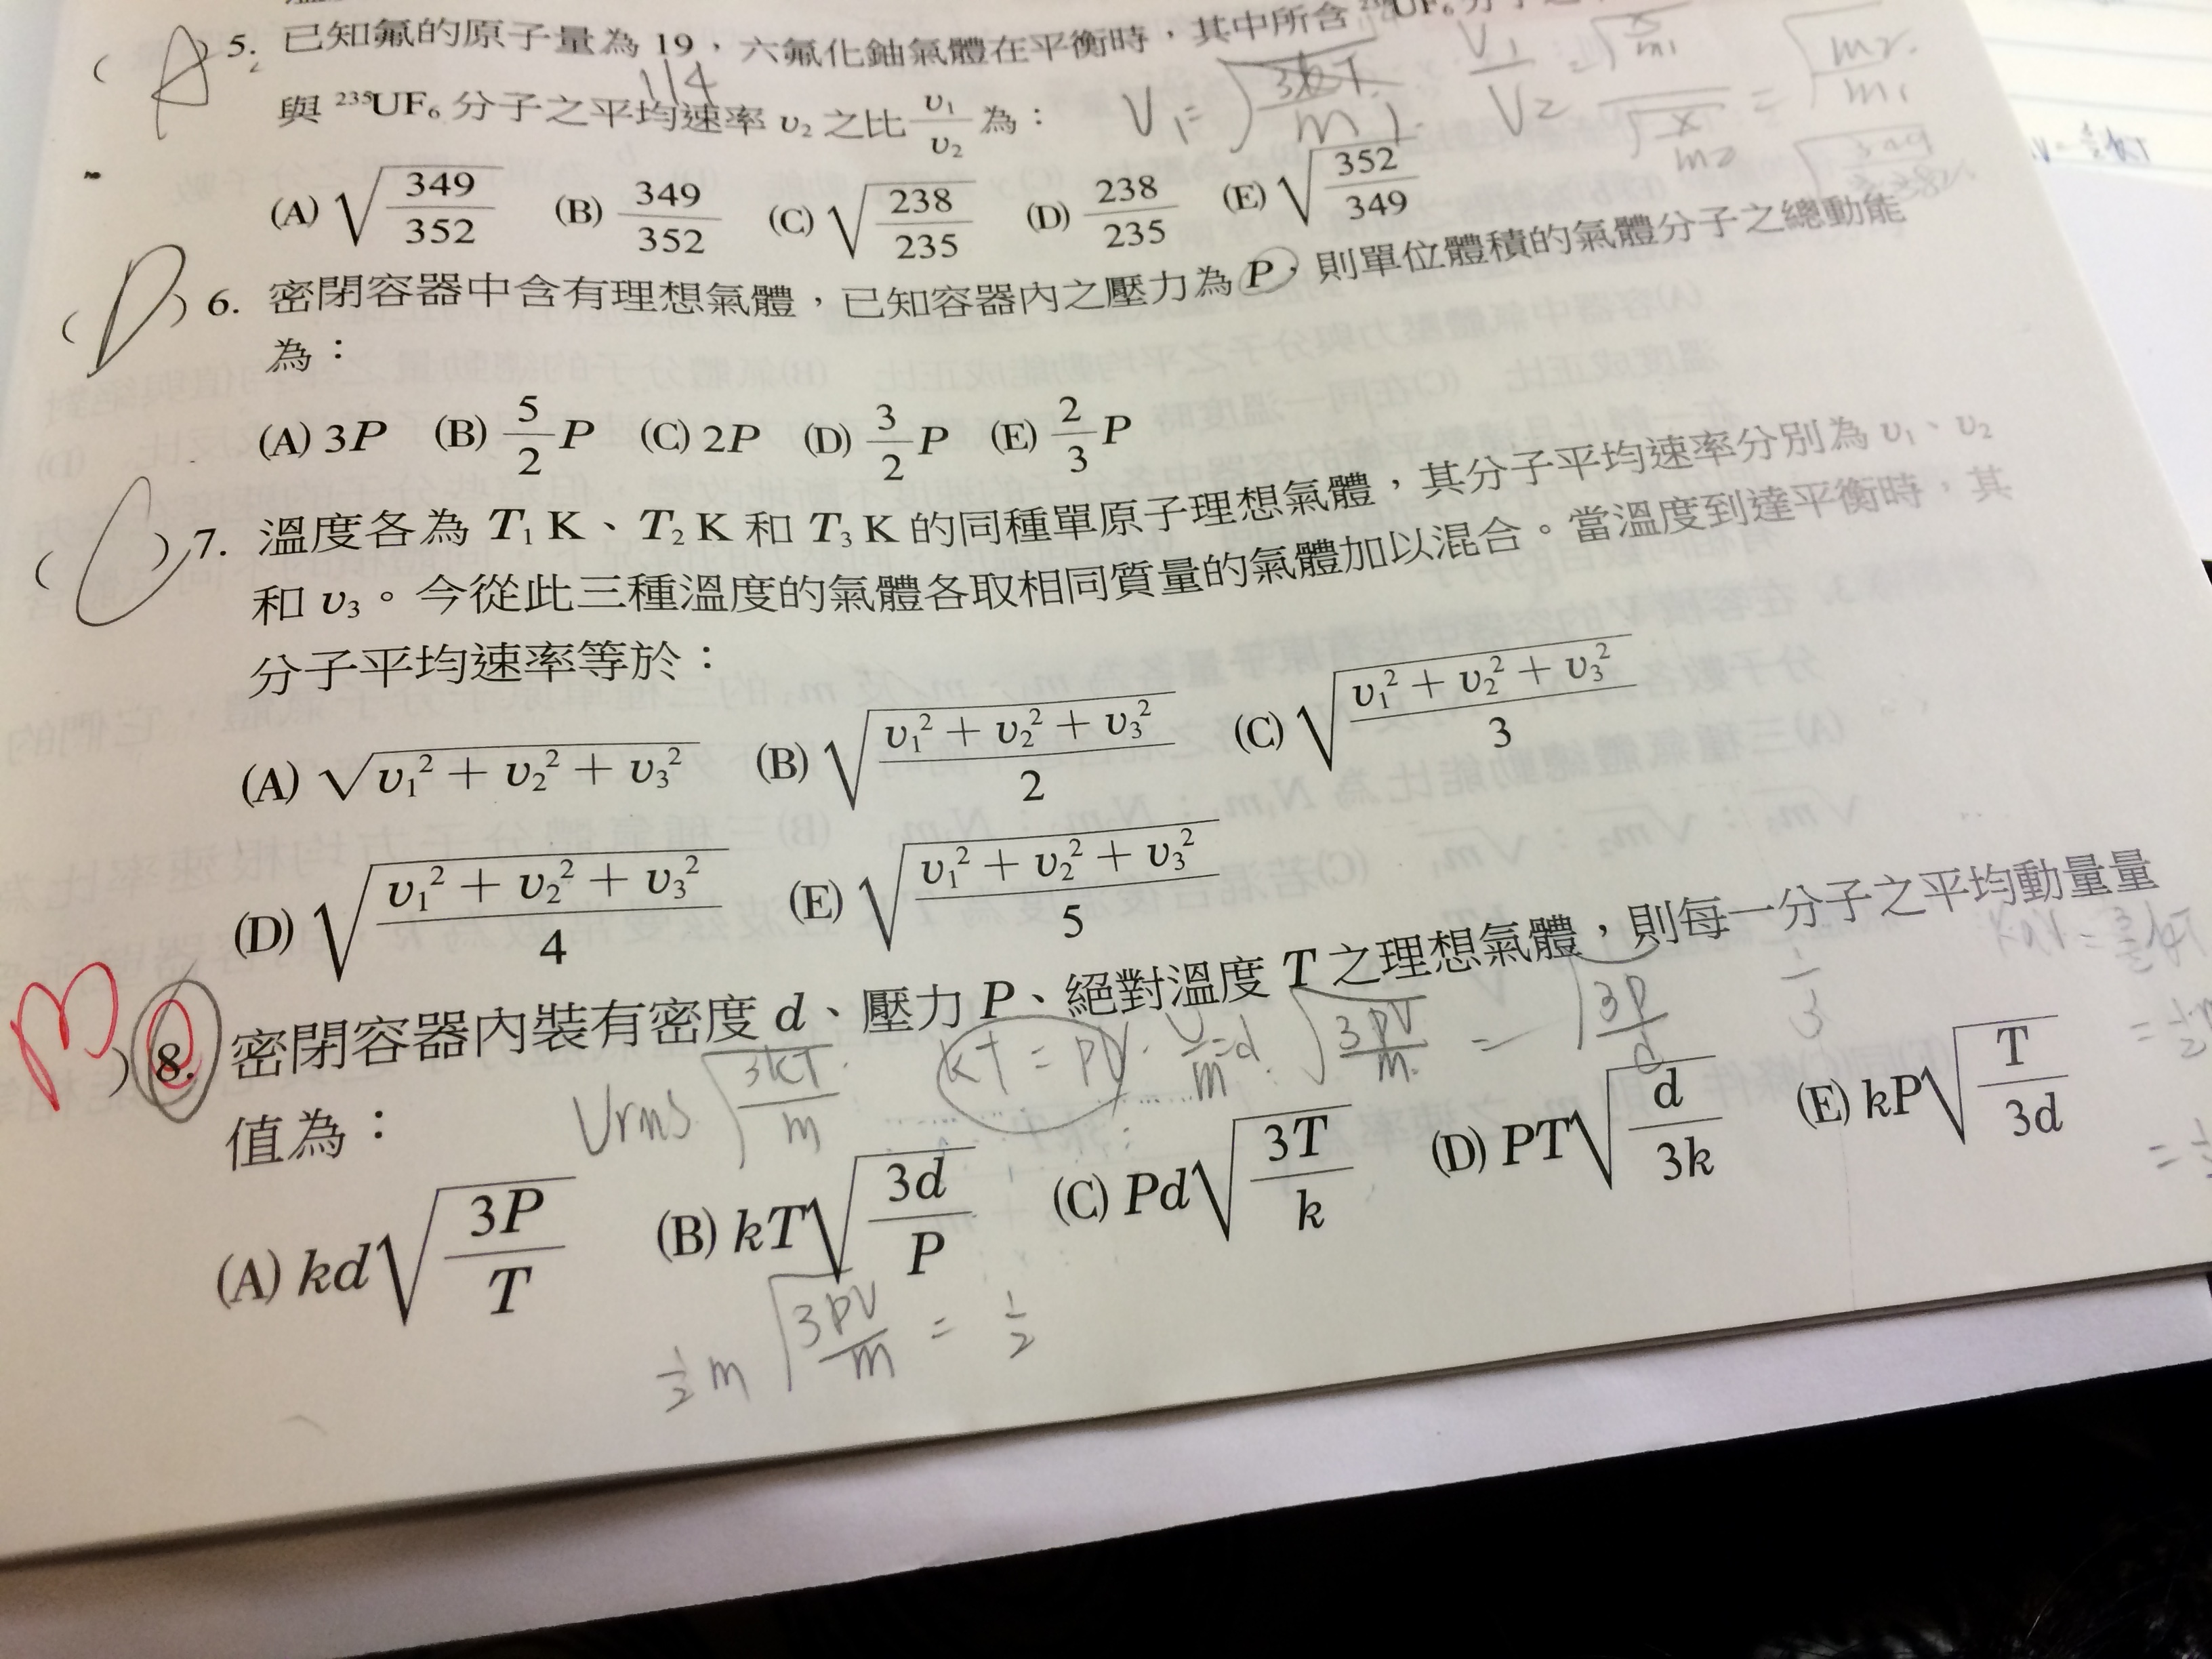 (A) 5. 已知氟的原子量為 19，六氟化鈾氣體在平衡時，其中所含
114
與 ²³⁵UF₆ 分子之平均速率 v₂ 之比 v₁/v₂ 為：
V₁ = √(3kT/m₁)
V₁/V₂ = √(x/m₁) / √(x/m₂) = √(m₂/m₁)
(A) √(349/352) (B) 349/352 (C) √(238/235) (D) 238/235 (E) √(352/349)
(D) 6. 密閉容器中含有理想氣體，已知容器內之壓力為 P，則單位體積的氣體分子之總動能
為：
(A) 3P (B) 5/2 P (C) 2P (D) 3/2 P (E) 2/3 P
(C) 7. 溫度各為 T₁ K、T₂ K 和 T₃ K 的同種單原子理想氣體，其分子平均速率分別為 v₁、v₂
和 v₃。今從此三種溫度的氣體各取相同質量的氣體加以混合。當溫度到達平衡時，其
分子平均速率等於：
(A) √(v₁² + v₂² + v₃²) (B) √((v₁² + v₂² + v₃²)/2) (C) √((v₁² + v₂² + v₃²)/3)
(D) √((v₁² + v₂² + v₃²)/4) (E) √((v₁² + v₂² + v₃²)/5)
B) 8. 密閉容器內裝有密度 d、壓力 P、絕對溫度 T 之理想氣體，則每一分子之平均動量量
值為：
Vrms √(3kT/m) kT = PV V/m=d √(3PV/m) = √(3P/d) 1/3
(A) kd√(3P/T) (B) kT√(3d/P) (C) Pd√(3T/k) (D) PT√(d/3k) (E) kP√(T/3d)
1/2 m √(3PV/m) = 1/2